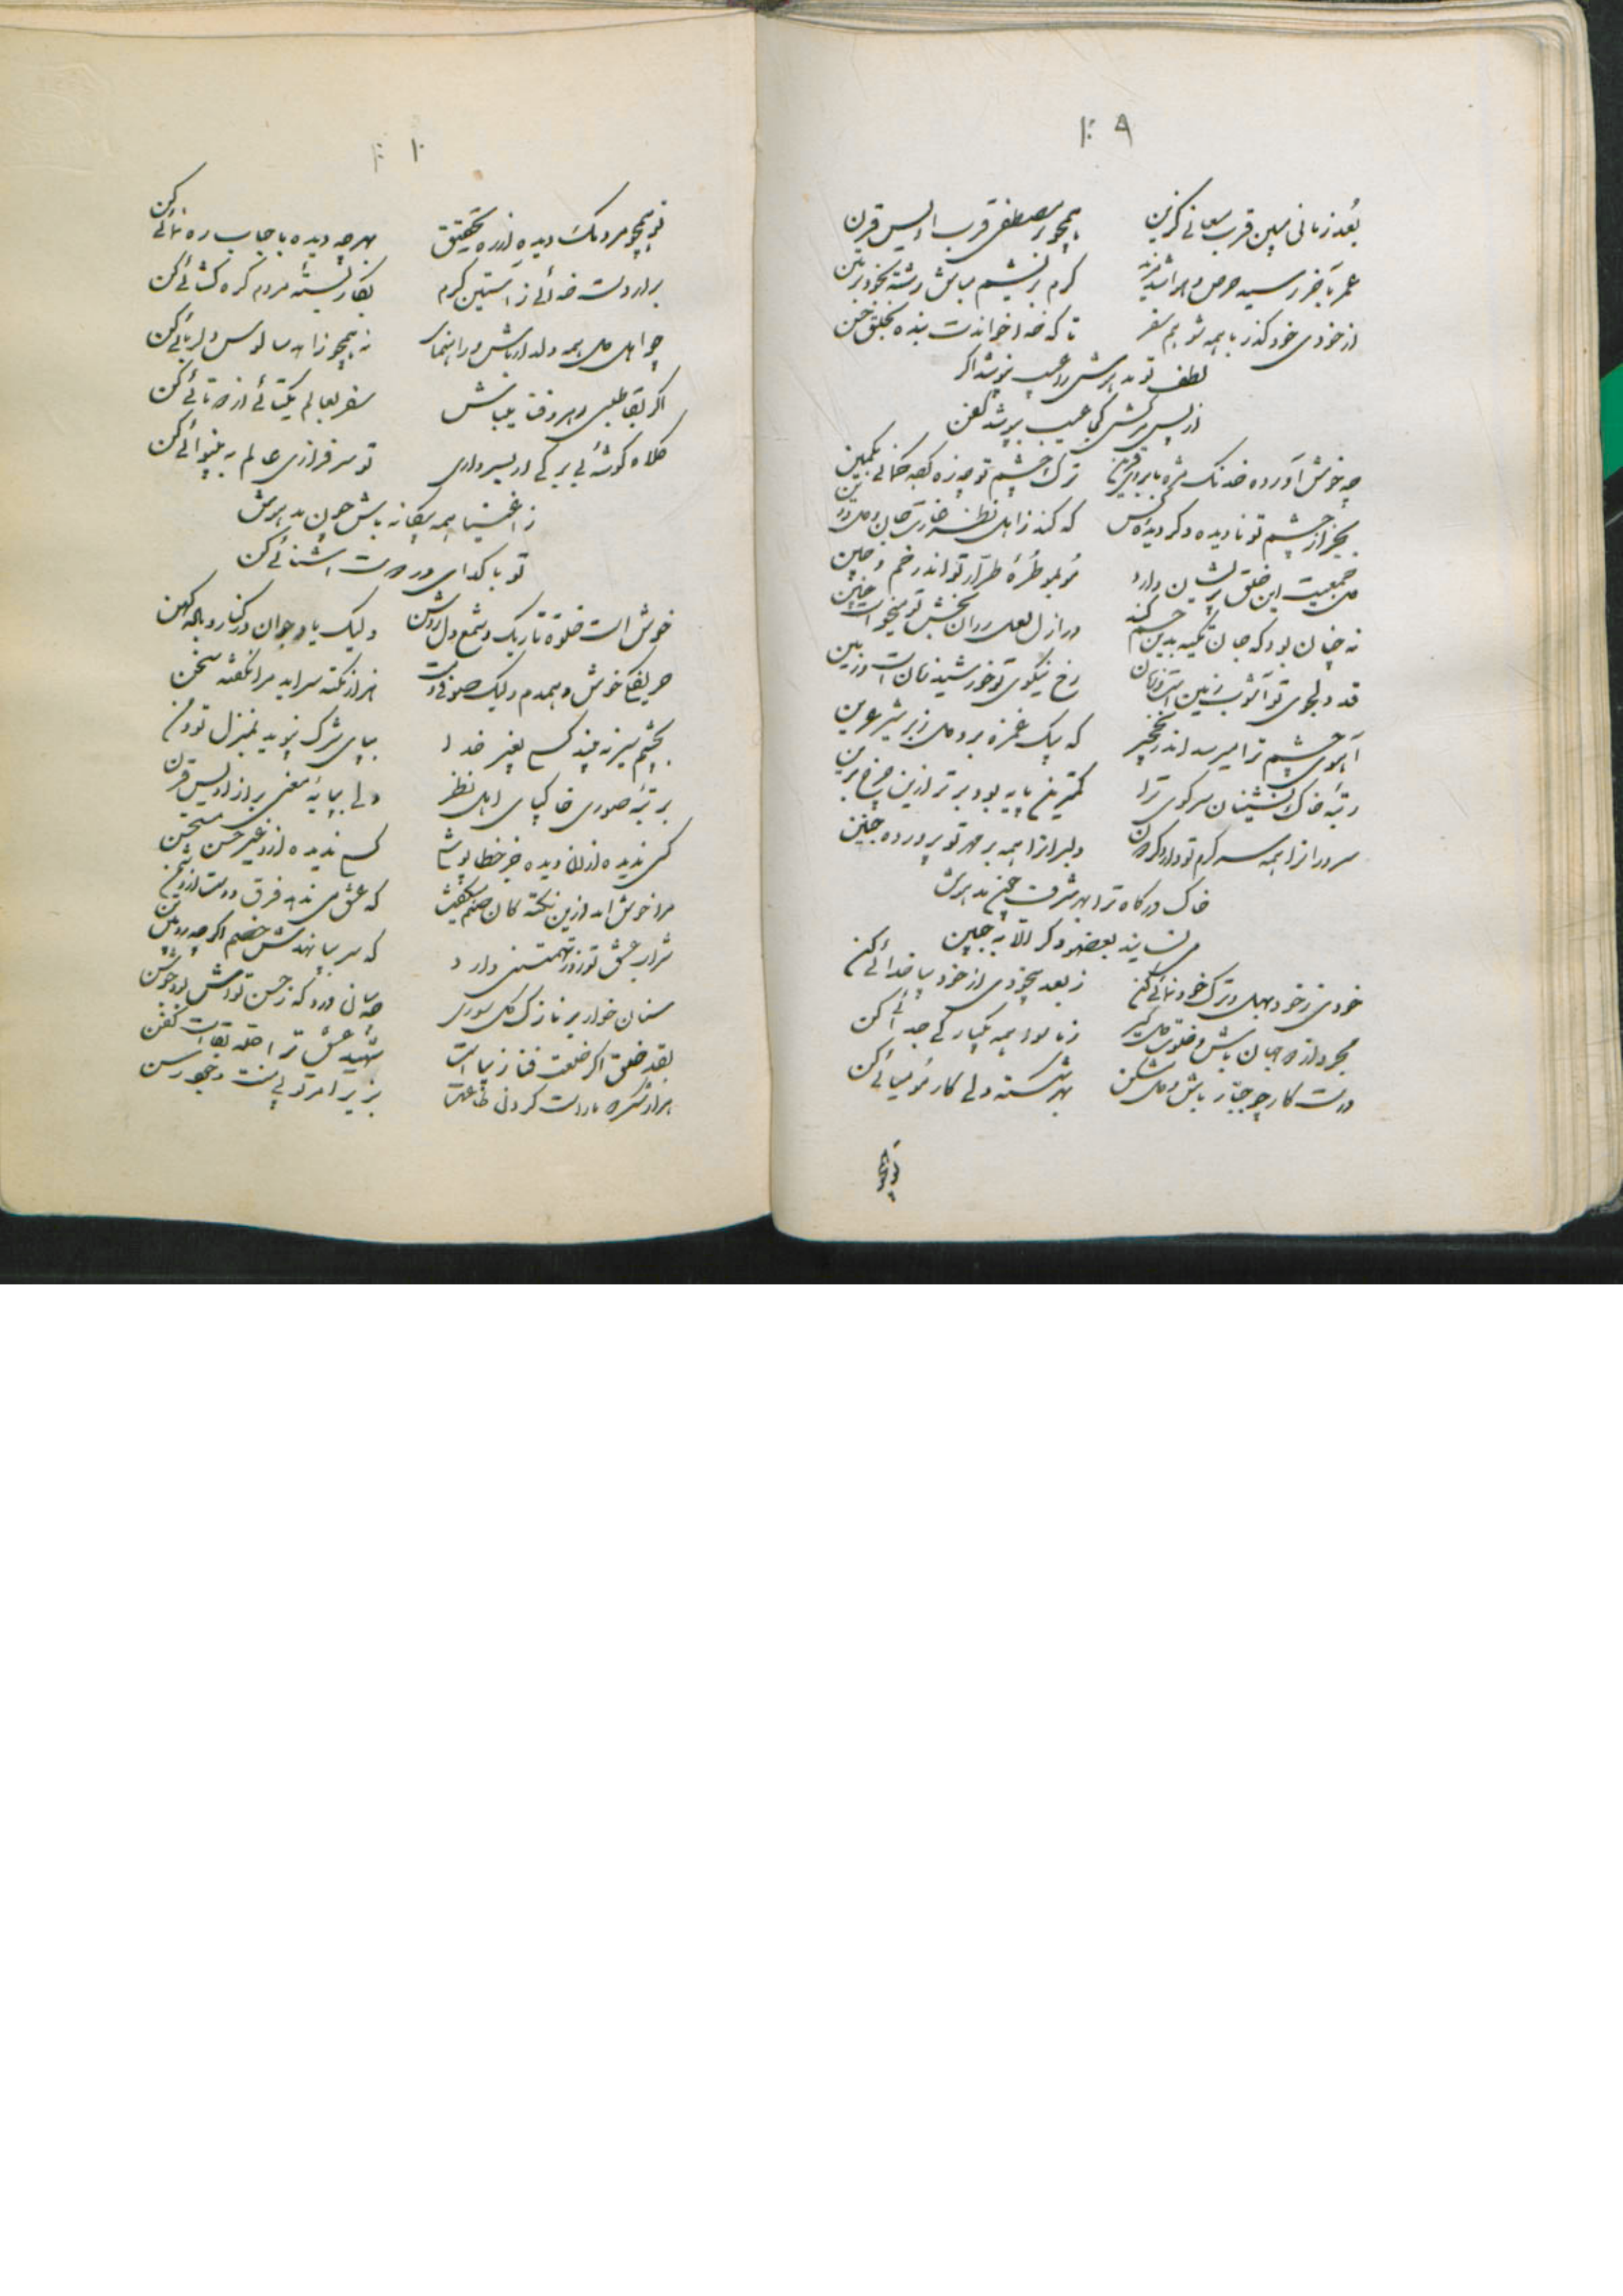 ۱۰۹
بُعد زمانی مبین قرب معانی گزین
همچو مصطفی قرب اویس قرن
عمر بآخر رسید حرص و هوا شد مزید
کرم بریشم مباش رشته بخود بر متن
از خودی خود گذر با همه شو هم سفر
تا که خدا خواندت بنده بخلق حسن
لطف تو مد هوش را عیب بپوشد اگر
از پس مرگش کجا عیب بپوشد کفن
چه خوش آورده خدنگ مژه بابرو قرین
ترک چشم تو چه زه کرده کمانی بکمین
بجز از چشم تو نادیده دگر دیده کس
که کند ز اهل نظر غارت جان و دل و دین
دل جمعیت این خلق پریشان دارد
مو بمو طُرهٔ طرّار تو اندر خم و چین
نه چنان بود که جان تکیه بدین جسم کند
در ازل لعل روان بخش تو میخواست چنین
قد دلجوی تو آشوب زمین است و زمان
رخ نیکوی تو خورشید زمان است و زمین
آهوی چشم ترا میرسد اندر نخجیر
که بیک غمزه برد دل ز بر شیر عرین
رتبهٔ خاک نشینان سر کوی ترا
کمترین پایه بود برتر ازین چرخ برین
سرورانرا همه سر گرم تو دارد گردون
دلبرانرا همه بر مهر تو پرورده جنین
خاک درگاه ترا بهر شرف چین مد هوش
می نساید بعضو دگر الا به جبین
خودی ز خود بهل و ترک خود نمائی کن
ز بعد بیخودی از خود بیا خدائی کن
مجرد از دو جهان باش و خلوت دل گیر
ز ما سوا همه یکبارگی جدائی کن
درست کار چو جبّار باش و دل مشکن
بهر شکسته دلی کار مومیائی کن
تو همچو
۱۱۰
تو همچو مردمک دیده از ره تحقیق
بهر چه دیده باحباب ره نمائی کن
برار دست خدائی ز آستین کرم
بکار بستهٔ مردم گره گشائی کن
چو اهل دل همه دلدار باش و راهنما
نه همچو زاهد سالوس دلربائی کن
اگر بقا طلبی رهرو فنا میباش
سفر بعالم یکتائی از دوتائی کن
کلاه گوشهٔ بی برگی ار بسر داری
تو سرفرازی عالم به بینوائی کن
ز اغنیا همه بیگانه باش چون مد هوش
تو با گدای در دوست آشنائی کن
خوش است خلوة تاریک و شمع دل روشن
ولیک یار جوان در کنار و باده کهن
حریفکا خوش و همدم ولیک صوفی وقت
هزار نکته سراید مرا نگفته سخن
بچشم سر نه بیند کسی بغیر خدا
بپای شرک نپوید بمنزل تو و من
برتبهٔ صوری خاکپای اهل نظر
ولی بپایهٔ معنی به از اویس قرن
کس ندیده از آن دیده جز خطا پوشی
کسی ندیده ازو غیر حسن مستحسن
مرا خوش آمد ازین نکته کان صنم میگفت
که عشق می ندهد فرق دوست از دشمن
شراب عشق تو زور تهمتنی دارد
که سر بپا نهدش خصم اگر چه رویین تن
سنان خوار بر نازک گل سوری
چه سانی درد که ز حسن تو اش بود جوشن
بقد خلق اگر خلعت فنا زیباست
شهید عشق ترا حله بقاست کفن